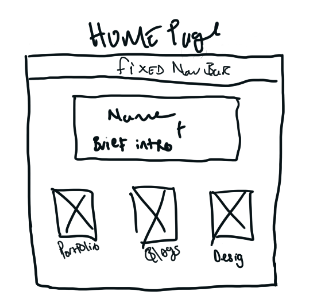 HOME Page
FIXED Nav Bar
Name +
Brief intro
Portfolio
Blogs
Desig